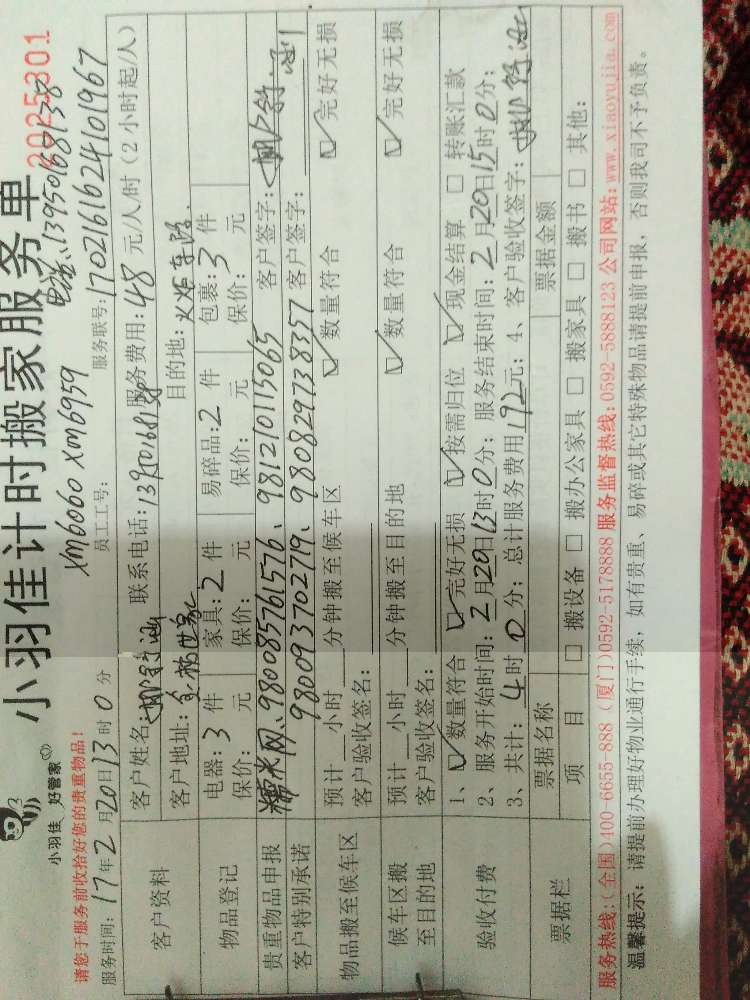 小羽佳计时搬家服务单
2025301
小羽佳 好管家
电话：13950168138
XM6060 XM6959
请您于服务前收拾好您的贵重物品！
服务时间：17年2月20日13时0分 员工工号： 服务联号：1702161624101967
客户资料
客户姓名： 联系电话：13950168138 服务费用：48元/人/时（2小时起/人）
客户地址： 目的地：火炬东路.
物品登记
电器：3件 家具：2件 易碎品：2件 包裹：3件
保价： 元 保价： 元 保价： 元 保价： 元
贵重物品申报
糯米网、980085761576、981210115065 客户签字：
客户特别承诺
980093702719、980829738357 客户签字：
物品搬至候车区
预计 小时 分钟搬至候车区 ☑数量符合 ☑完好无损
客户验收签名：
候车区搬至目的地
预计 小时 分钟搬至目的地 ☑数量符合 ☑完好无损
客户验收签名：
验收付费
1、☑数量符合 ☑完好无损 ☑按需归位 ☑现金结算 □转账汇款
2、服务开始时间：2月20日13时0分；服务结束时间：2月20日15时0分；
3、共计：4时0分；总计服务费用192元；4、客户验收签字：
票据栏
票据名称 票据金额
项 目 □搬设备 □搬办公家具 □搬家具 □搬书 □其他：
服务热线：（全国）400-6655-888（厦门）0592-5178888 服务监督热线：0592-5888123 公司网站：www.xiaoyujia.com
温馨提示：请提前办理好物业通行手续，如有贵重、易碎或其它特殊物品请提前申报，否则我司不予负责。